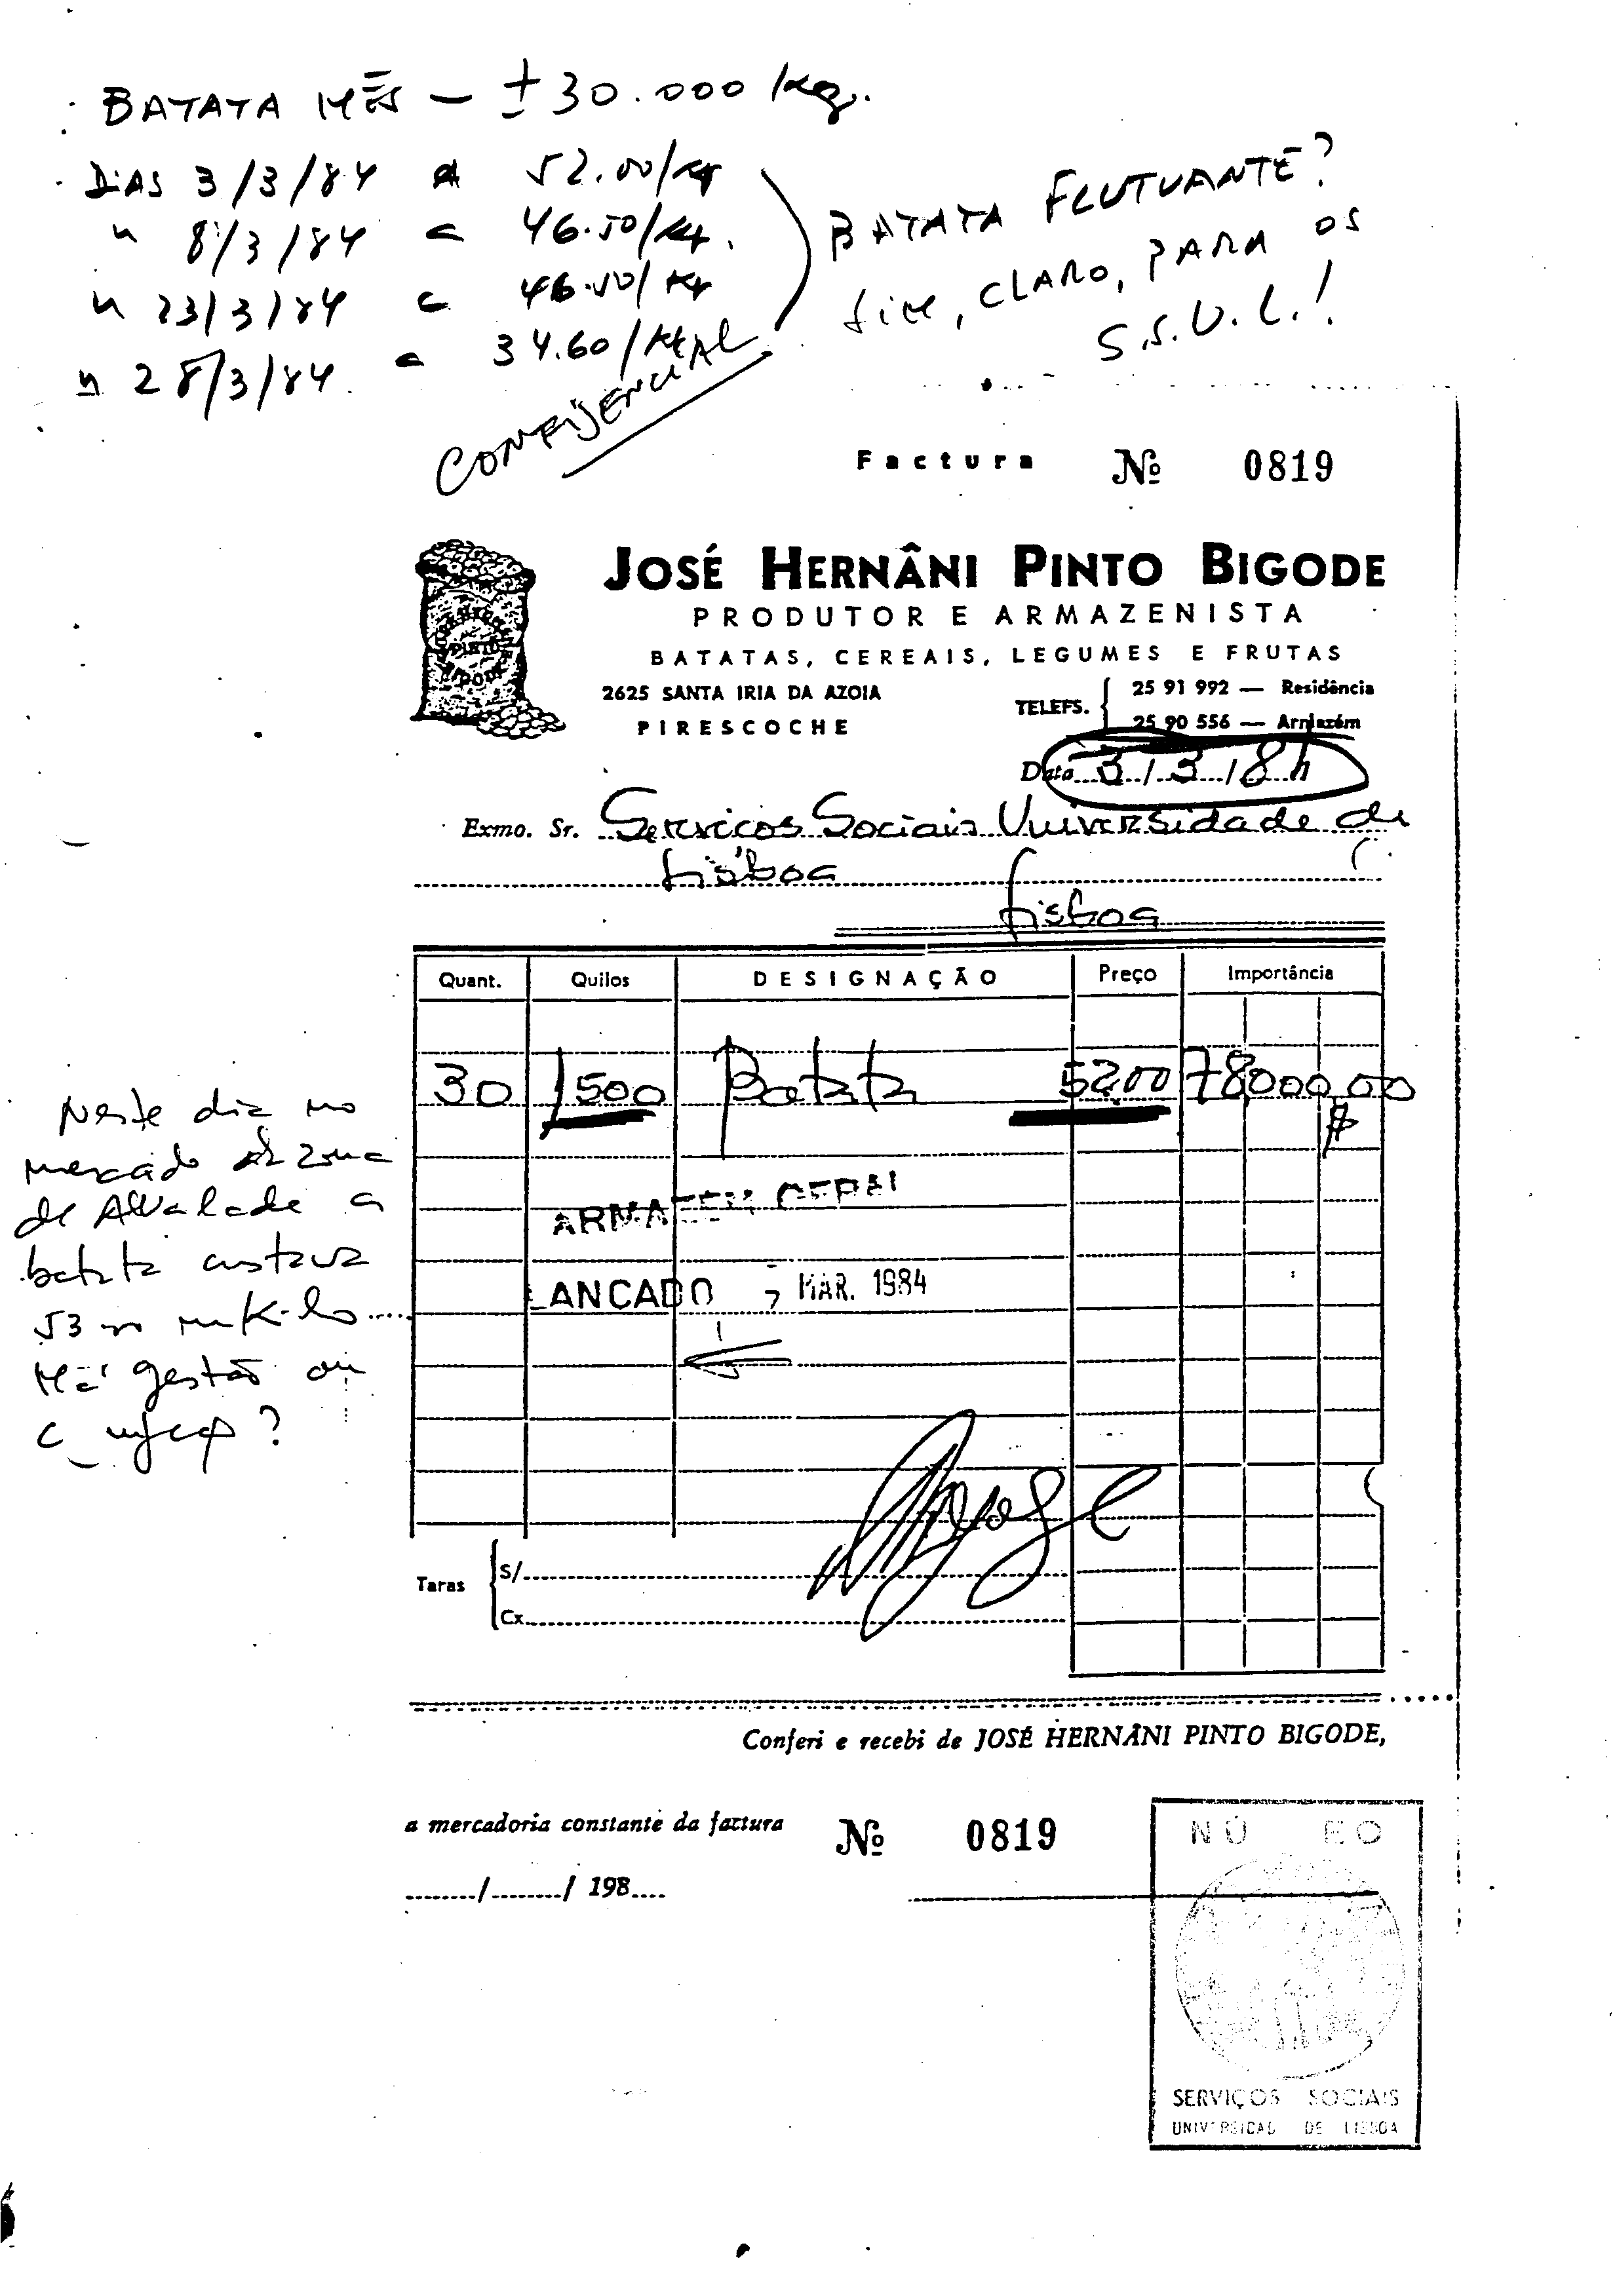 BATATA MÊS — ± 30.000 kg.
DIAS 3/3/84 a 52.00/kg
" 8/3/84 a 46.50/kg.
" 23/3/84 a 46.50/kg
" 28/3/84. a 34.60/kg
CONFIDENCIAL
BATATA FLUTUANTE?
SIM, CLARO, PARA OS
S.S.U.L.!
Factura Nº 0819
JOSÉ HERNÂNI PINTO BIGODE
PRODUTOR E ARMAZENISTA
BATATAS, CEREAIS, LEGUMES E FRUTAS
2625 SANTA IRIA DA AZOIA
PIRESCOCHE
TELEFS. 25 91 992 — Residência
25 90 556 — Armazém
Data 3/3/84
Exmo. Sr. Serviços Sociais Universidade de
Lisboa
Lisboa
Quant. Quilos DESIGNAÇÃO Preço Importância
30 1500 Batata 52.00 78000,00
ARMAZEM GERAL
LANCADO 7 MAR. 1984
Neste dia no
mercado de zona
de Alvalade a
batata custava
53 um kilo
Má gestão ou
Taras S/
Cx.
Conferi e recebi de JOSÉ HERNÂNI PINTO BIGODE,
a mercadoria constante da factura Nº 0819
/ / 198
NÚ EO
SERVIÇOS SOCIAIS
UNIVERSIDAD DE LISBOA